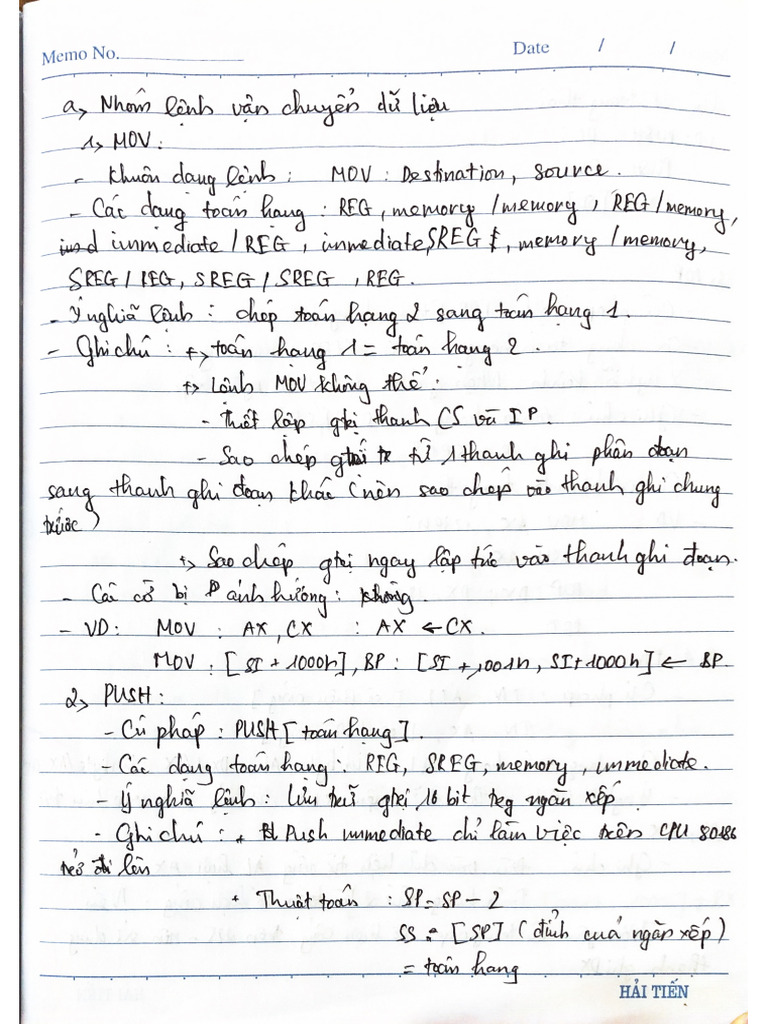 Memo No. Date / /
a, Nhóm lệnh vận chuyển dữ liệu
1, MOV:
- Khuôn dạng lệnh: MOV: Destination, source.
- Các dạng toán hạng: REG, memory / memory, REG / memory,
immediate / REG, immediate, SREG, memory / memory,
SREG / REG, SREG / SREG, REG.
- Ý nghĩa lệnh: chép toán hạng 2 sang toán hạng 1.
- Ghi chú: +> toán hạng 1 = toán hạng 2.
+> Lệnh MOV không thể:
- Thiết lập gtrị thanh CS và IP.
- Sao chép gtrị từ 1 thanh ghi phân đoạn
sang thanh ghi đoạn khác (nên sao chép vào thanh ghi chung
trước)
+> Sao chép gtrị ngay lập tức vào thanh ghi đoạn.
- Các cờ bị ảnh hưởng: không.
- VD: MOV: AX, CX : AX ← CX.
MOV: [SI + 1000h], BP: [SI + 1001h, SI+1000h] ← BP
2, PUSH:
- Cú pháp: PUSH [toán hạng].
- Các dạng toán hạng: REG, SREG, memory, immediate.
- Ý nghĩa lệnh: Lưu trữ gtrị 16 bit trg ngăn xếp.
- Ghi chú: + Push immediate chỉ làm việc trên CPU 80186
trở lên
+ Thuật toán: SP = SP - 2
SS: [SP] (đỉnh của ngăn xếp)
= toán hạng
HẢI TIẾN